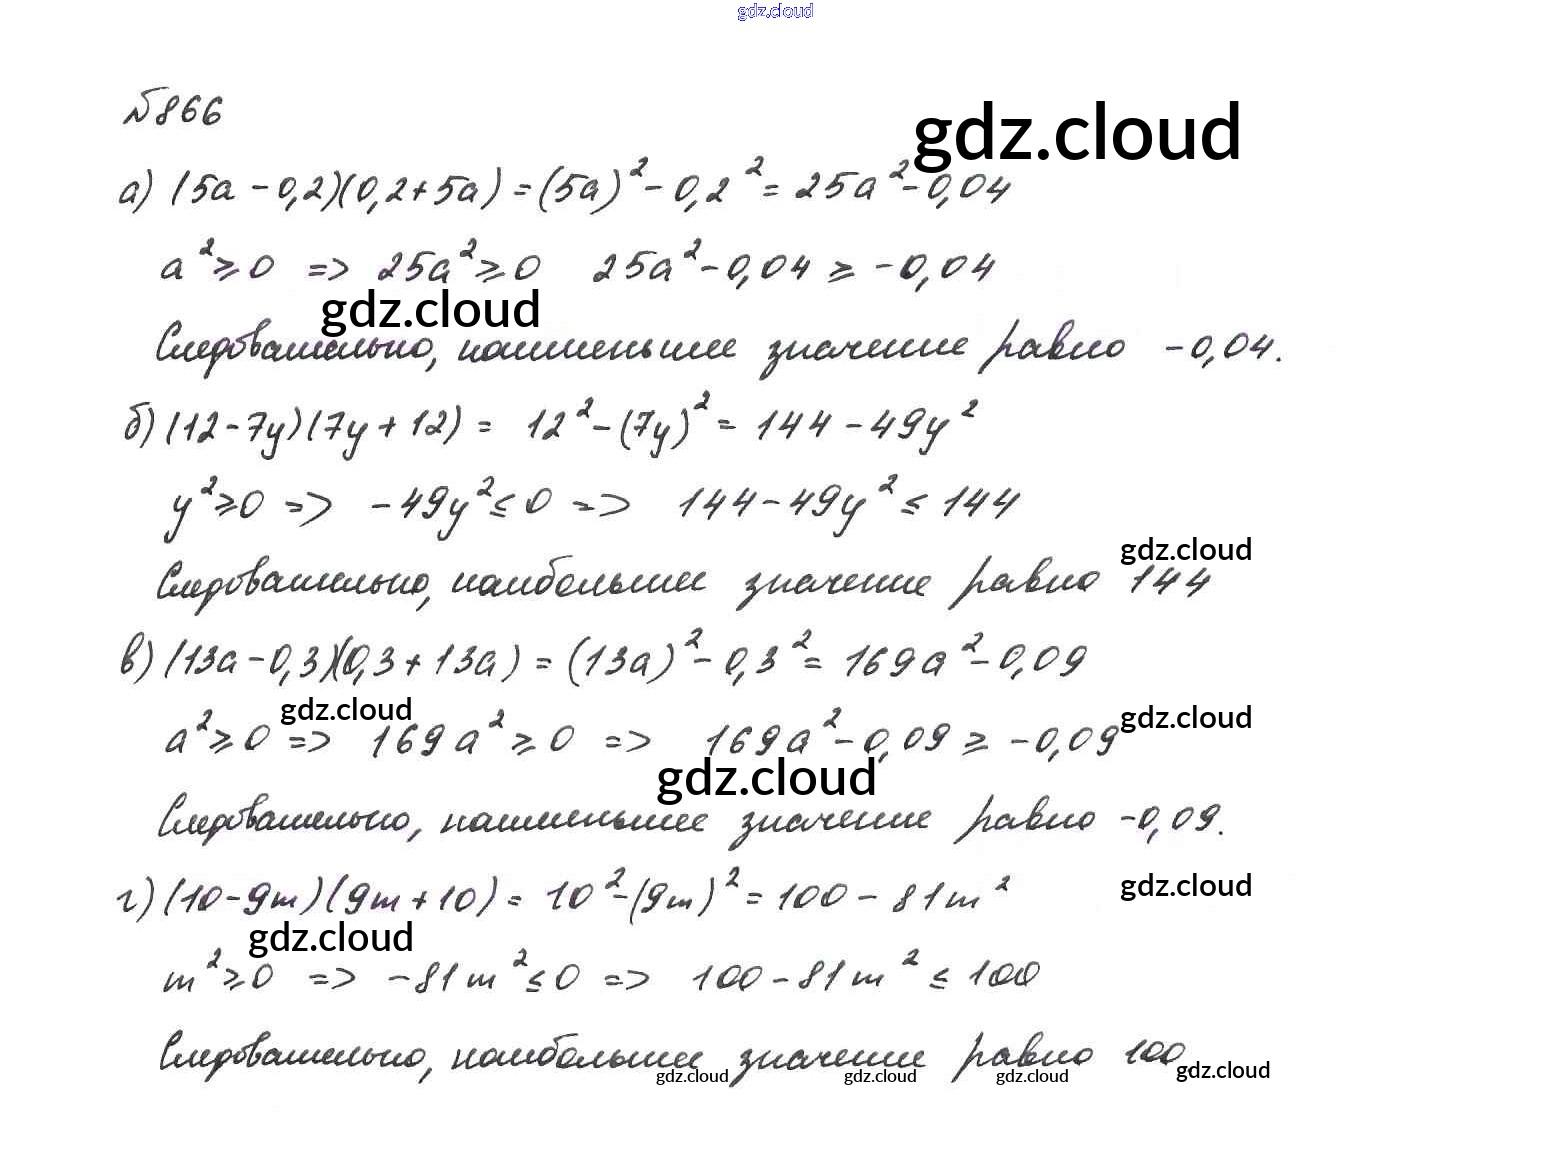 gdz.cloud
№866
gdz.cloud
а) (5a - 0,2)(0,2 + 5a) = (5a)² - 0,2² = 25a² - 0,04
a² ≥ 0 => 25a² ≥ 0 25a² - 0,04 ≥ -0,04
gdz.cloud
Следовательно, наименьшее значение равно -0,04.
б) (12 - 7y)(7y + 12) = 12² - (7y)² = 144 - 49y²
y² ≥ 0 => -49y² ≤ 0 => 144 - 49y² ≤ 144
gdz.cloud
Следовательно, наибольшее значение равно 144
в) (13a - 0,3)(0,3 + 13a) = (13a)² - 0,3² = 169a² - 0,09
gdz.cloud gdz.cloud
a² ≥ 0 => 169a² ≥ 0 => 169a² - 0,09 ≥ -0,09
gdz.cloud
Следовательно, наименьшее значение равно -0,09.
г) (10 - 9m)(9m + 10) = 10² - (9m)² = 100 - 81m²
gdz.cloud
gdz.cloud
m² ≥ 0 => -81m² ≤ 0 => 100 - 81m² ≤ 100
Следовательно, наибольшее значение равно 100
gdz.cloud gdz.cloud gdz.cloud gdz.cloud